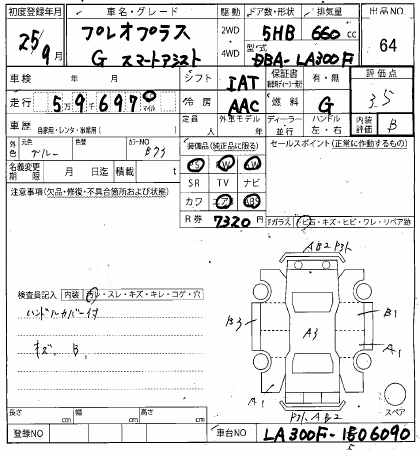 初度登録年月 車名・グレード 駆動 ドア数・形状 排気量 出品NO
25/9月 プレオプラス 2WD 5HB 660cc 64
G スマートアシスト 4WD 型式 DBA-LA300F
車検 年 月 シフト IAT 保証書 有・無 評価点
走行 5万9697 マイル 冷房 AAC 燃料 G 3.5
車歴 自家用・レンタ・事業用( ) 定員 人 外車モデル 年 ディーラー 並行 ハンドル 左・右 内装評価 B
外色 元色 ブルー 色替 カラーNO B79 装備品(純正品に限る) セールスポイント(正常に作動するもの)
名義変更期限 月 日迄 積載 t PS PW AW
注意事項(欠品・修復・不具合箇所および状態) SR TV ナビ
カワ エアB ABS
R券 7320円 Fガラス(ヒ石・キズ・ヒビ・ワレ・リペア跡)
AB2 ｱﾄ
検査員記入 内装 汚レ・スレ・キズ・キレ・コゲ・穴
ハンドルカバー付
B3 A3 B1
キズ、B、
A1
A1
AB2
スペア
長さ cm 幅 cm 高さ cm
登録NO 車台NO LA300F-1506090